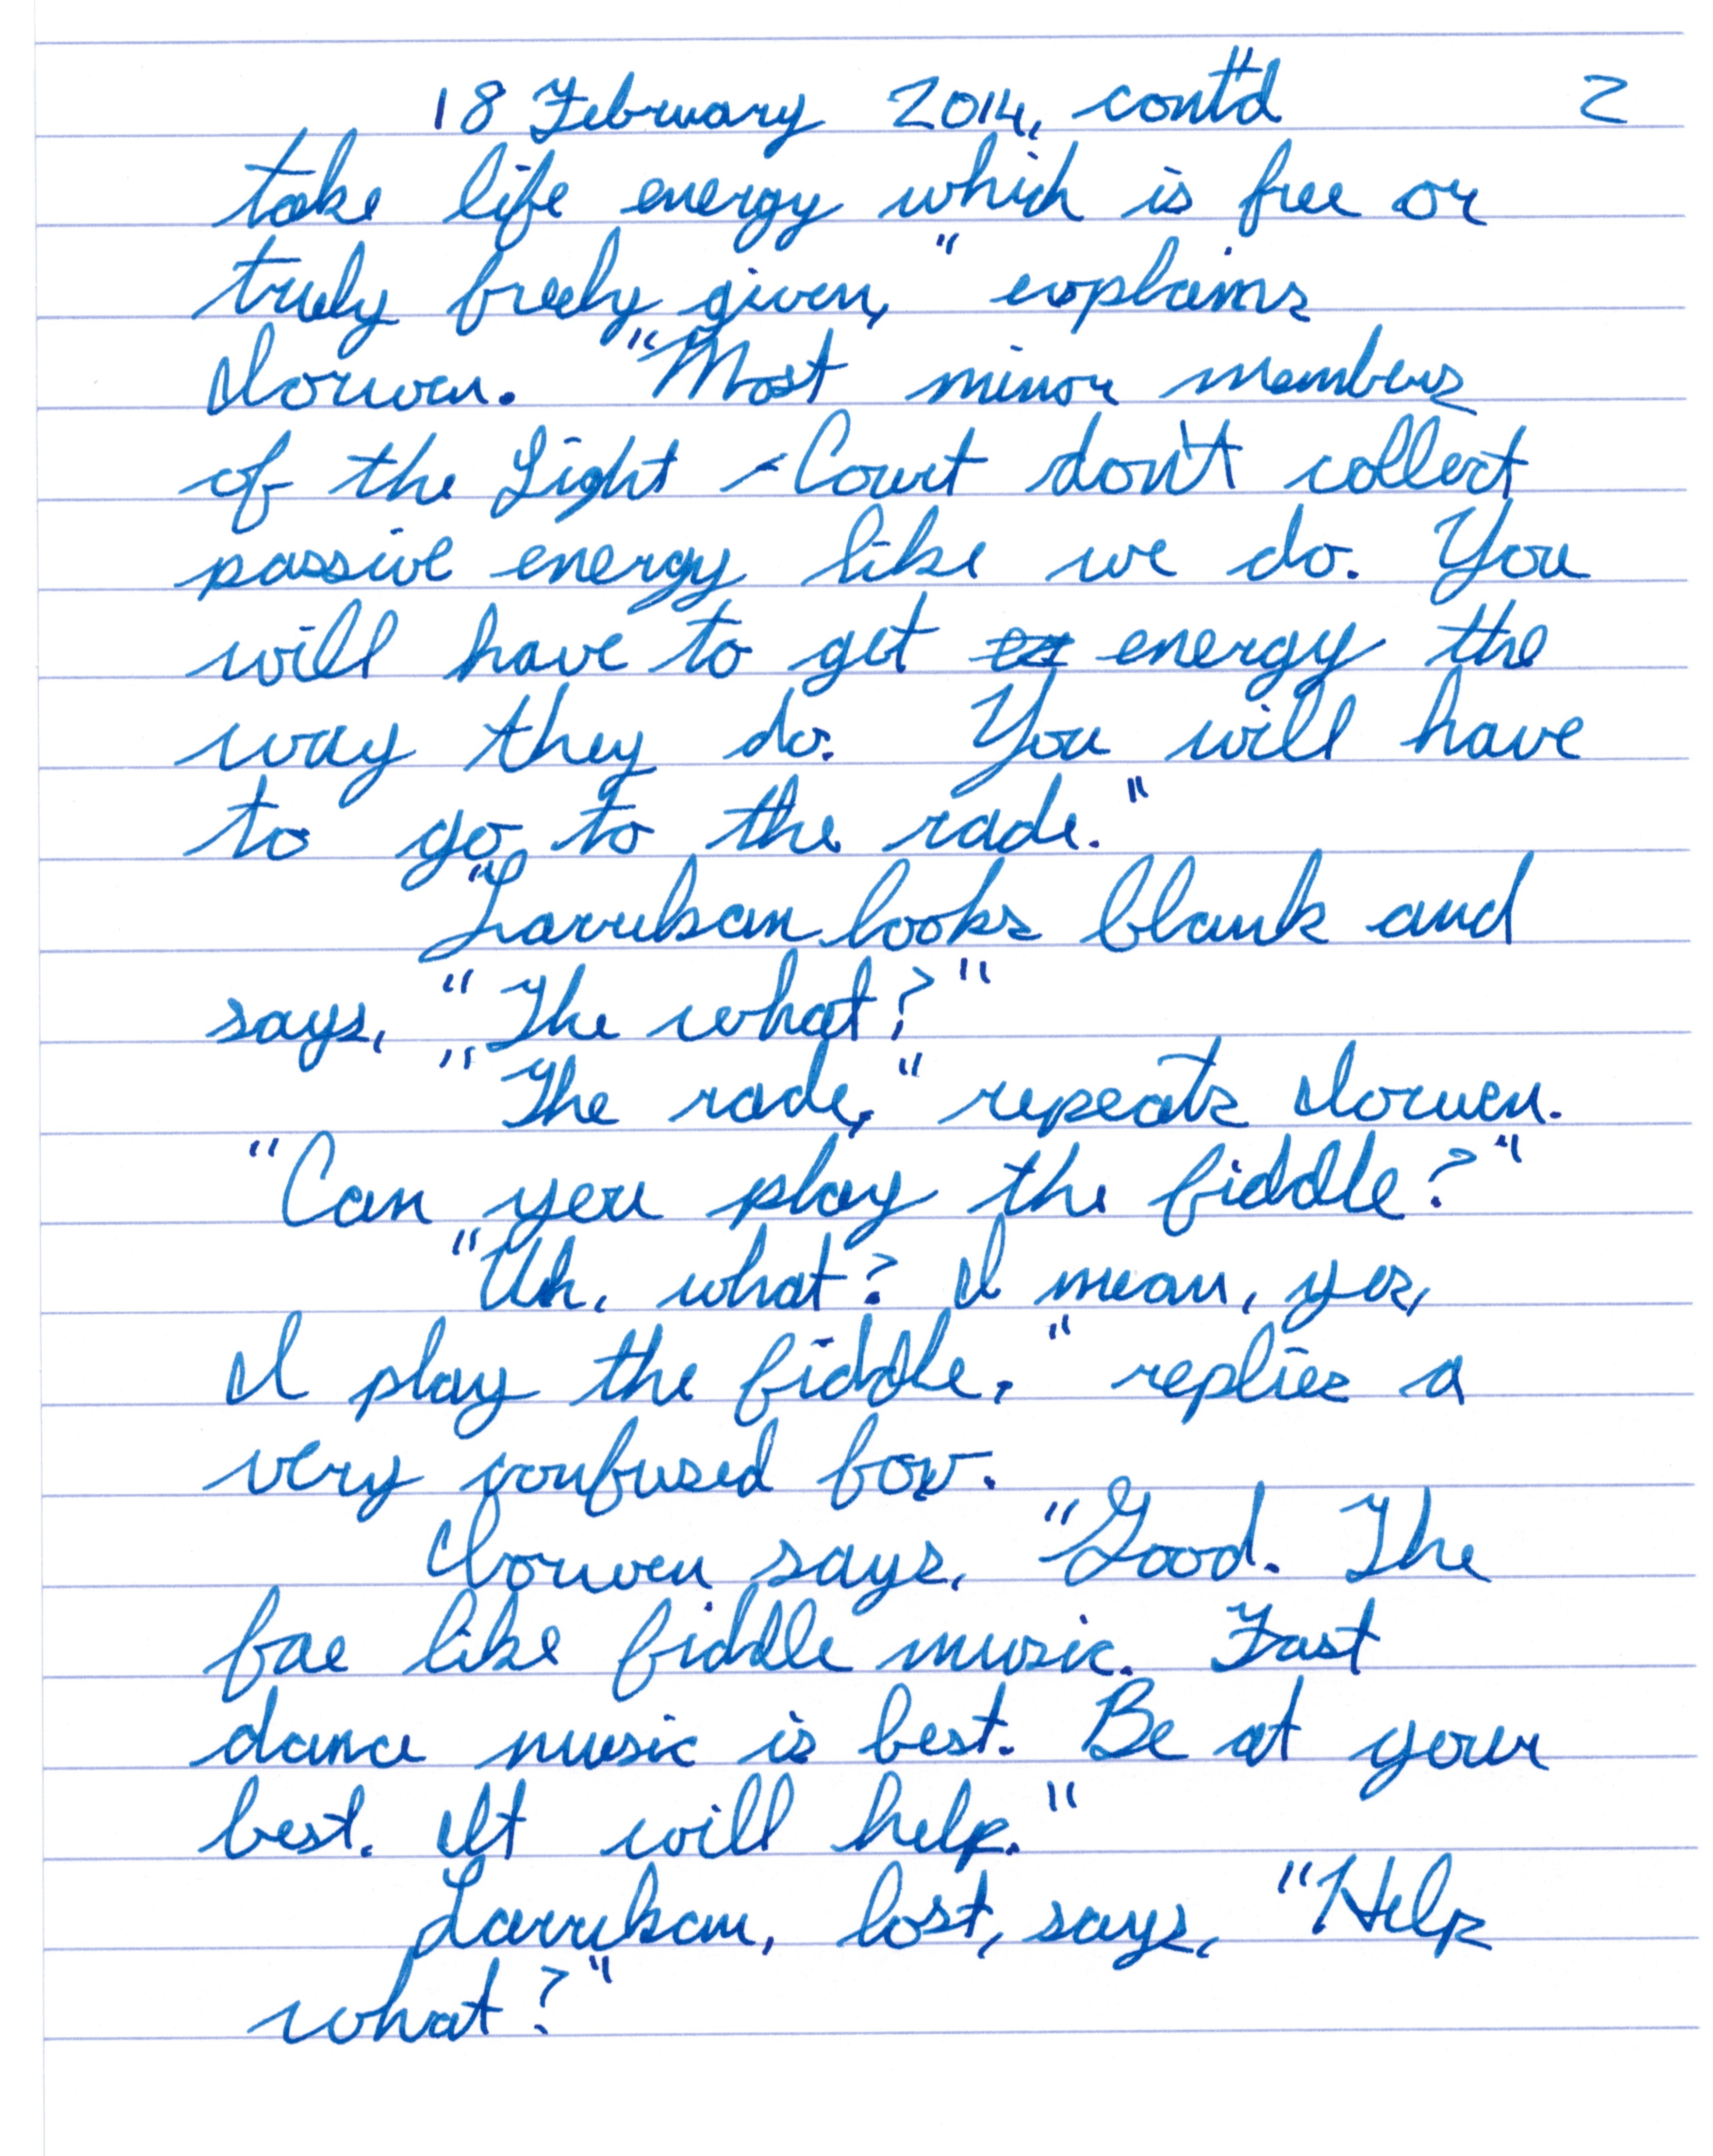 18 February 2014, cont'd 2
take life energy which is free or
truly freely given," explains
Iorwen. "Most minor members
of the Light-Court don't collect
passive energy like we do. You
will have to get energy the
way they do. You will have
to go to the rade."
"Larrikan looks blank and
says, "The what?"
"The rade," repeats Iorwen.
"Can you play the fiddle?"
"Uh, what? I mean, yes,
I play the fiddle," replies a
very confused fox.
Iorwen says, "Good. The
fae like fiddle music. Fast
dance music is best. Be at your
best. It will help."
Larrikan, lost, says, "Help
what?"